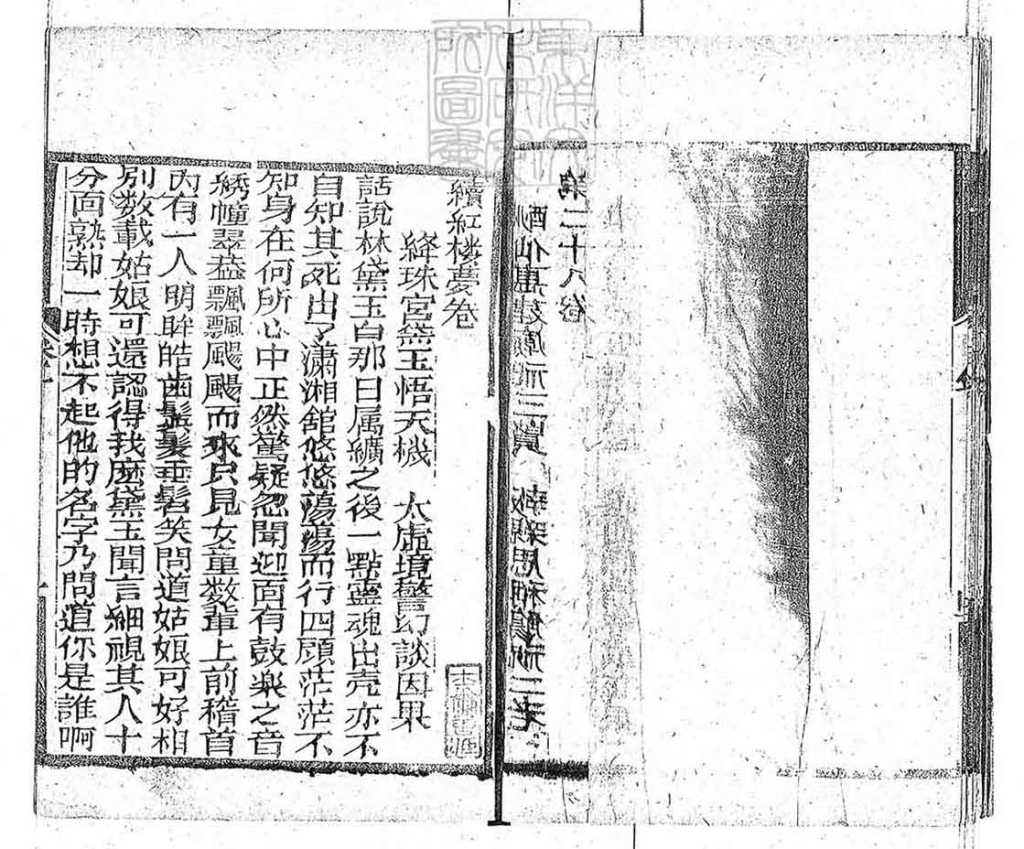 第二十八卷
續紅楼夢卷
絳珠宮黛玉悟天機　太虛境警幻談因果
話說林黛玉自那日属纊之後一點靈魂出壳亦不
自知其死出了瀟湘舘悠悠蕩蕩而行四顧茫茫不
知身在何所心中正然驚疑忽聞迎面有鼓樂之音
綉幢翠蓋飄飄颺颺而來只見女童数輩上前稽首
內有一人明眸皓齒鬟髮垂髫笑問道姑娘可好相
別数載姑娘可還認得我麽黛玉聞言細視其人十
分面熟却一時想不起他的名字乃問道你是誰啊